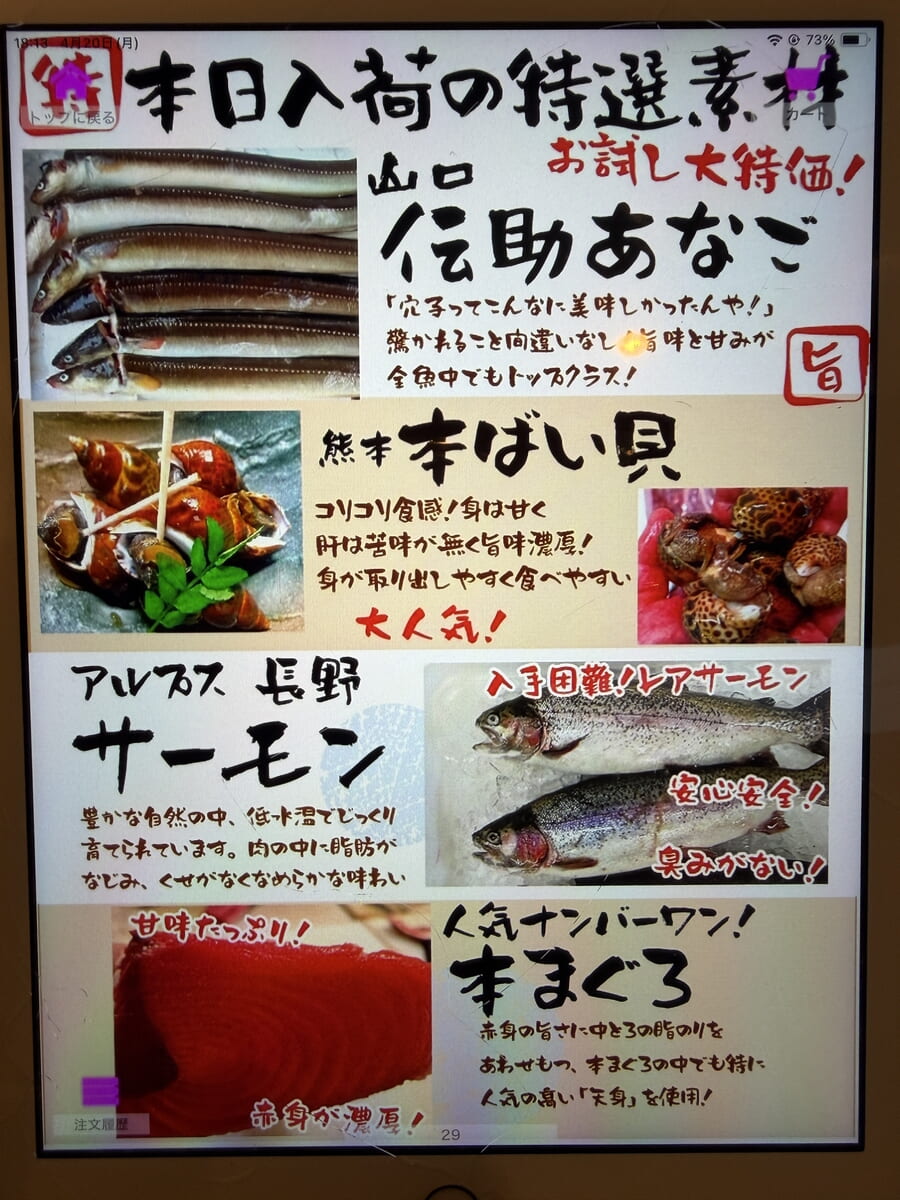 18:13 4月20日(月)
73%
トップに戻る
本日入荷の特選素材
カート
お試し大特価!
山口
伝助あなご
「穴子ってこんなに美味しかったんや!」
驚かれること間違いなし 旨味と甘みが
全魚中でもトップクラス!
旨
熊本 本ばい貝
コリコリ食感!身は甘く
肝は苦味が無く旨味濃厚!
身が取り出しやすく食べやすい
大人気!
アルプス 長野
サーモン
豊かな自然の中、低水温でじっくり
育てられています。肉の中に脂肪が
なじみ、くせがなくなめらかな味わい
入手困難!レアサーモン
安心安全!
臭みがない!
甘味たっぷり!
赤身が濃厚!
人気ナンバーワン!
本まぐろ
赤身の旨さに中とろの脂のりを
あわせもつ、本まぐろの中でも特に
人気の高い「天身」を使用!
注文履歴
29